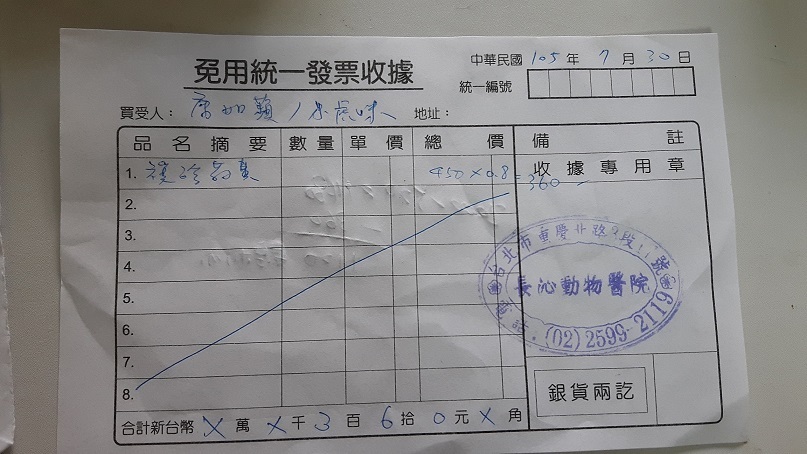 免用統一發票收據
中華民國 105 年 7 月 30 日
統一編號
買受人： 地址：
品名摘要 數量 單價 總價 備註
收據專用章
1. 複診 費 450×0.8=360
2.
3.
4.
5.
6.
7.
8.
台北市重慶北路 段 號
長沁動物醫院
(02)2599-2119
銀貨兩訖
合計新台幣 X 萬 X 千 3 百 6 拾 0 元 X 角